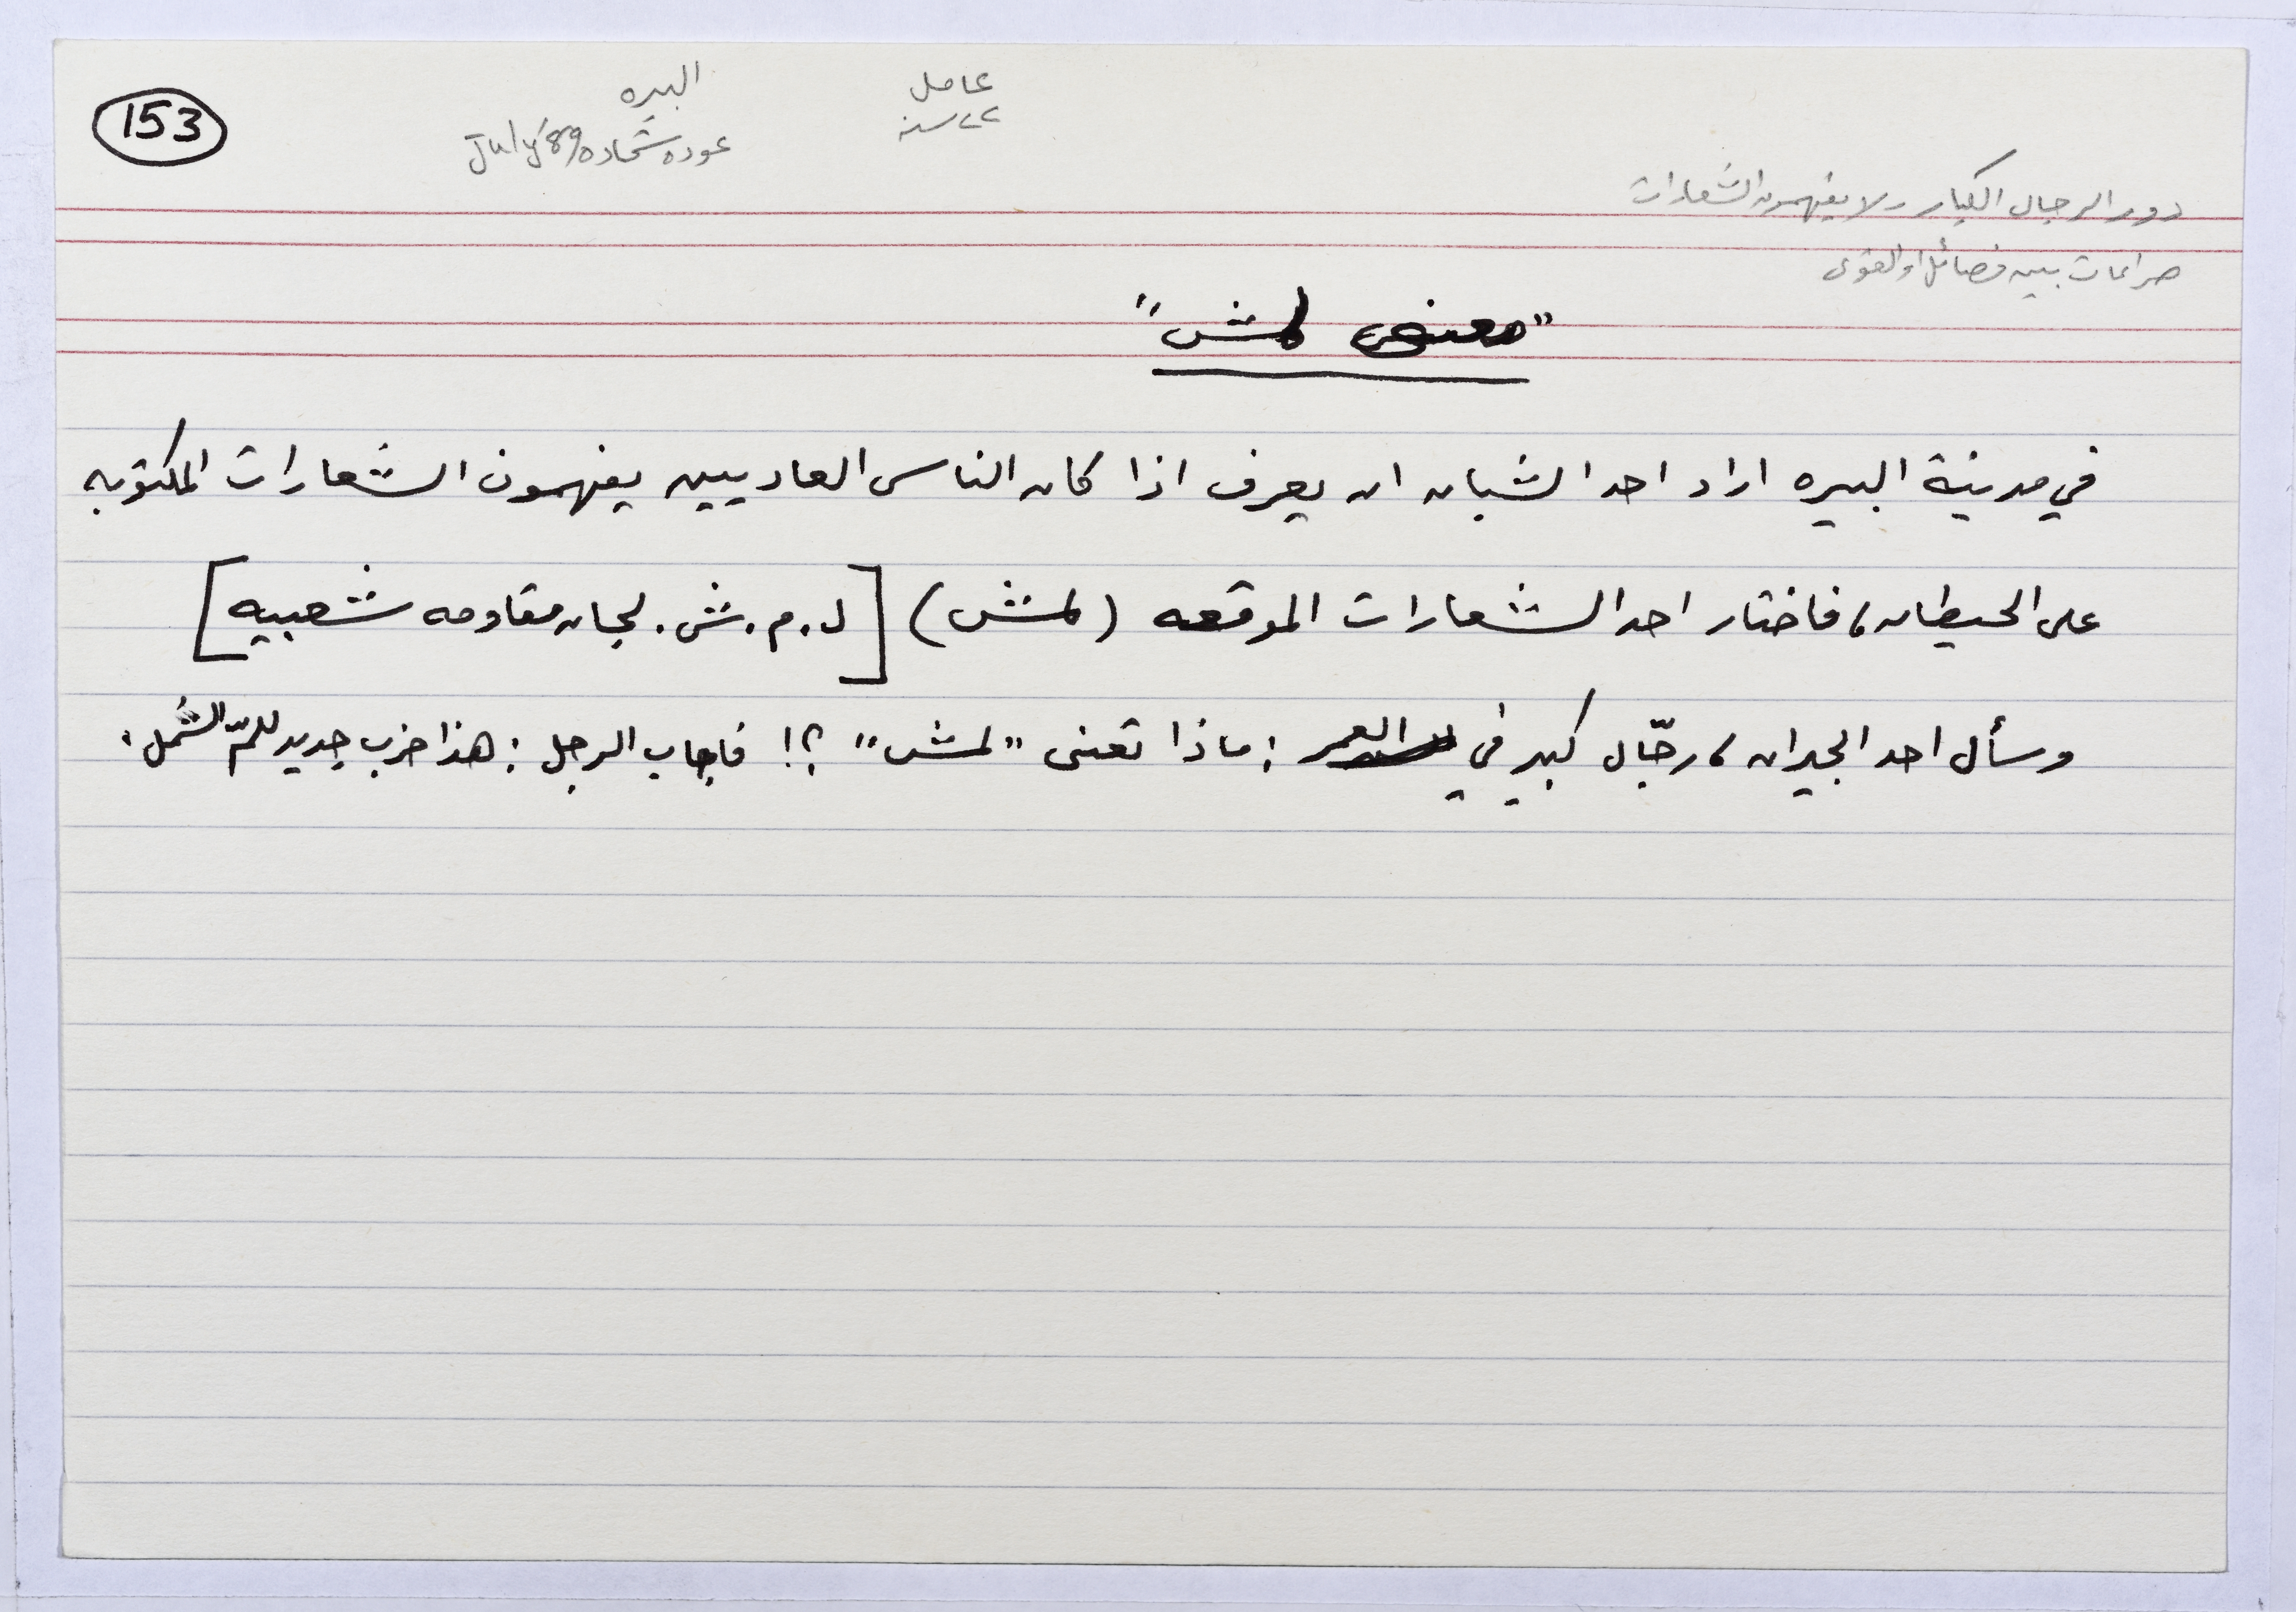 153
البيره
عوده شحاده July '89
عامل
٢٢ سنه
دور الرجال الكبار - لا يفهمون الشعارات
صراعات بين فصائل او القوى
"معنى لمش"
في مدينة البيره اراد احد الشبان ان يعرف اذا كان الناس العاديين يفهمون الشعارات المكتوبه
على الحيطان، فاختار احد الشعارات الموقعه (لمش) [ل.م.ش. لجان مقاومه شعبيه]
وسأل احد الجيران، رجّال كبير في العمر: ماذا تعنى "لمش" ؟! فاجاب الرجل: هذا حزب جديد للمّ الشمل.